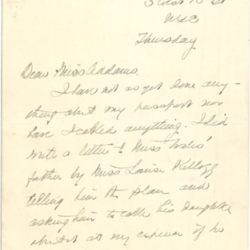 Thursday
Dear Miss Addams,
I have not as yet done any-
thing about my passport nor
have I cabled anything. I did
write a letter to Miss
father by Miss Louise Kellogg
telling him the plan and
asking him to cable his daughter
about at my expense if he